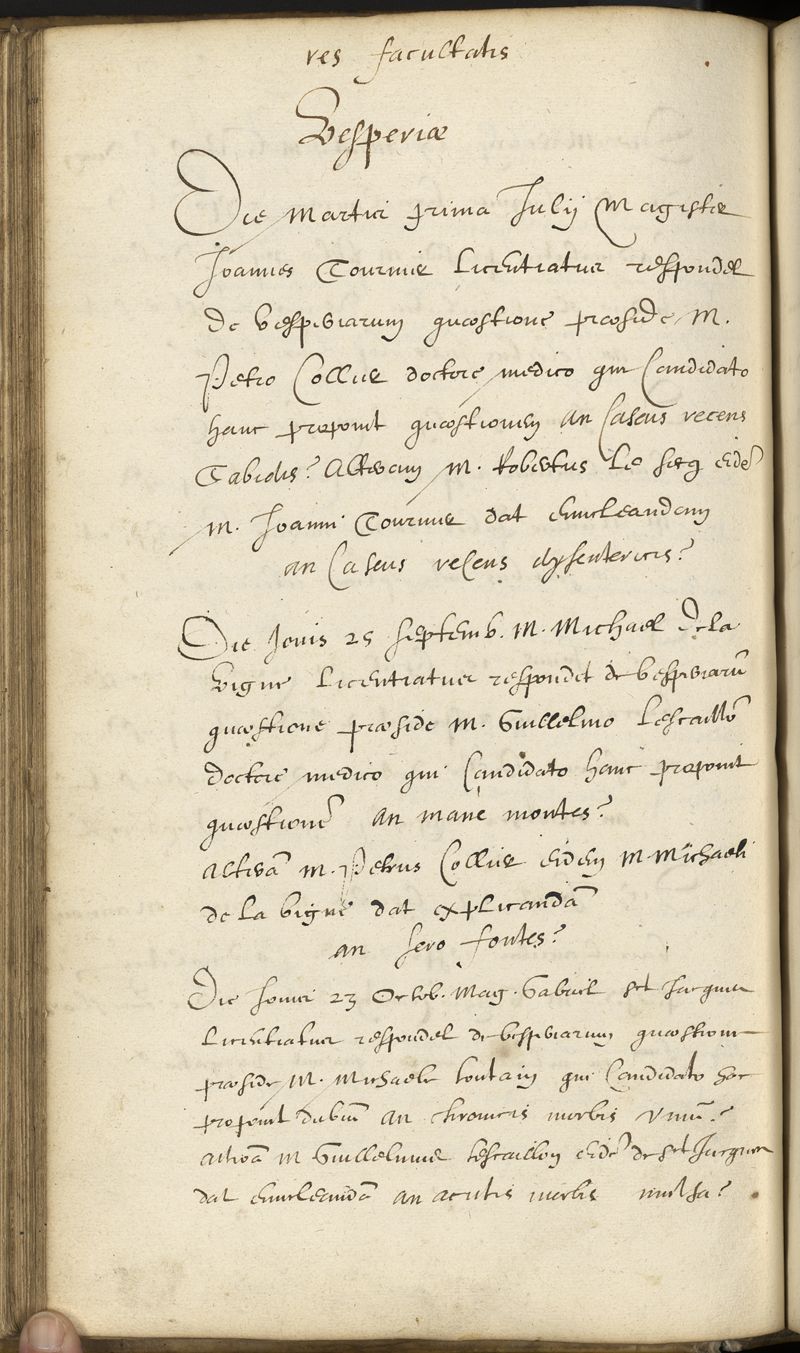 res facultatis
Vesperiæ
Die Martis prima Julij Magister
Joannes Tournier Licentiatus respondet
de vesperiarum quæstione præside M.
Petro Collier doctore medico qui Candidato
hanc proponit quæstionem an Caseus recens
Tabidis? Alteram M. Robertus Le secq eidē
M. Joanni Tournier dat enucleandam
an Caseus recens dysentericis?
Die Jovis 25 septemb. M. Michael de la
vigne Licentiatus respondet de vesperiarū
quæstione præside M. Guillelmo Lescaillō
doctore medico qui Candidato hanc proponit
quæstionē an mane montes?
alterā M. Petrus Collier eidem M. Michaeli
de la vigne dat explicandā
an sero fontes?
Die Jovis 23 Octob. Mag. Gabriel Jacques
Licentiatus respondet de vesperiarum quæstione
præside M. Michaele toutain qui Candidato hoc
proponit dubiū an chronicis morbis vinū?
alterā M Guillelmus lescaillon eidē de Jacques
dat enucleandā an acutis morbis mulsa?